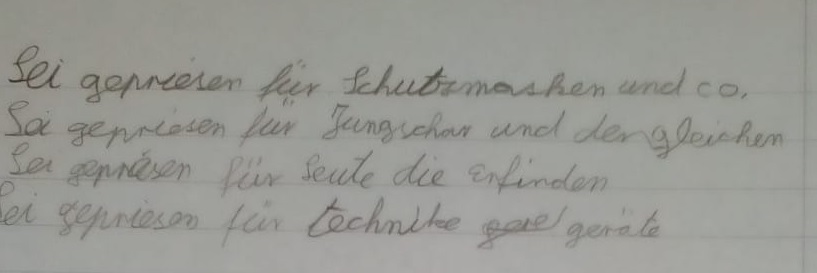 Sei gepriesen für Schutzmasken und co.
Sei gepriesen für Jungschar und dergleichen
Sei gepriesen für Leute die erfinden
Sei gepriesen für technike geräte